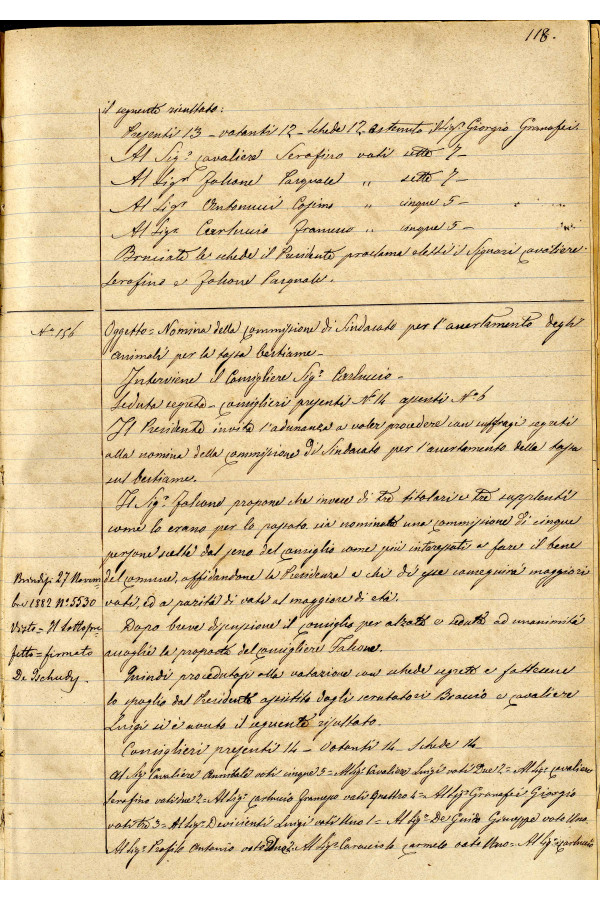 118.
il seguente risultato:
Presenti 13 – votanti 12 – schede 12 astenuto il Sig.r Giorgio Granafei.
Al Sig.r Cavaliere Serafino voti sette 7 –
Al Sig.r Falcone Pasquale „ sette 7 –
Al Sig.r Antonucci Cosimo „ cinque 5 –
Al Sig.r Carluccio Francesco „ cinque 5 –
Bruciate le schede il Presidente proclama eletti i Signori Cavaliere
Serafino e Falcone Pasquale.
N.o 156
Oggetto = Nomina della Commissione di Sindacato per l'accertamento degli
animali per la tassa bestiame –
Interviene il Consigliere Sig.r Carluccio –
Seduta segreta – Consiglieri presenti N.o 14 assenti N.o 6
Il Presidente invita l'adunanza a voler procedere con suffragi segreti
alla nomina della Commissione di Sindacato per l'accertamento della tassa
sul bestiame.
Il Sig.r Falcone propone che invece di tre titolari e tre supplenti
come lo erano per lo passato, sia nominata una commissione di cinque
persone scelte dal seno del Consiglio come più interessati a fare il bene
del Comune, affidandone la Presidenza a chi di essi conseguirà maggiori
voti, ed a parità di voti al maggiore di età.
Brindisi 27 Novem
bre 1882 N.o 5530
Visto = Il Sottopre=
fetto = firmato
De Tschudy.
Dopo breve discussione il Consiglio per alzata e seduta ad unanimità
accoglie la proposta del Consigliere Falcone.
Quindi procedutosi alla votazione con schede segrete e fattosene
lo spoglio dal Presidente assistito dagli scrutatori Braccio e Cavaliere
Luigi si è avuto il seguente risultato.
Consiglieri presenti 14 – Votanti 14 – Schede 14 –
Al Sig.r Cavaliere Annibale voti cinque 5 = Al Sig.r Cavaliere Luigi voti due 2 = Al Sig.r Cavaliere
Serafino voti due 2 = Al Sig.r Carluccio Francesco voti quattro 4 = Al Sig.r Granafei Giorgio
voti tre 3 = Al Sig.r Devicienti Luigi voti uno 1 = Al Sig.r De Guido Giuseppe voto uno.
Al Sig.r Profilo Antonio voti Due 2. Al Sig.r Caracciolo Carmelo voto uno = Al Sig.r Carluccio